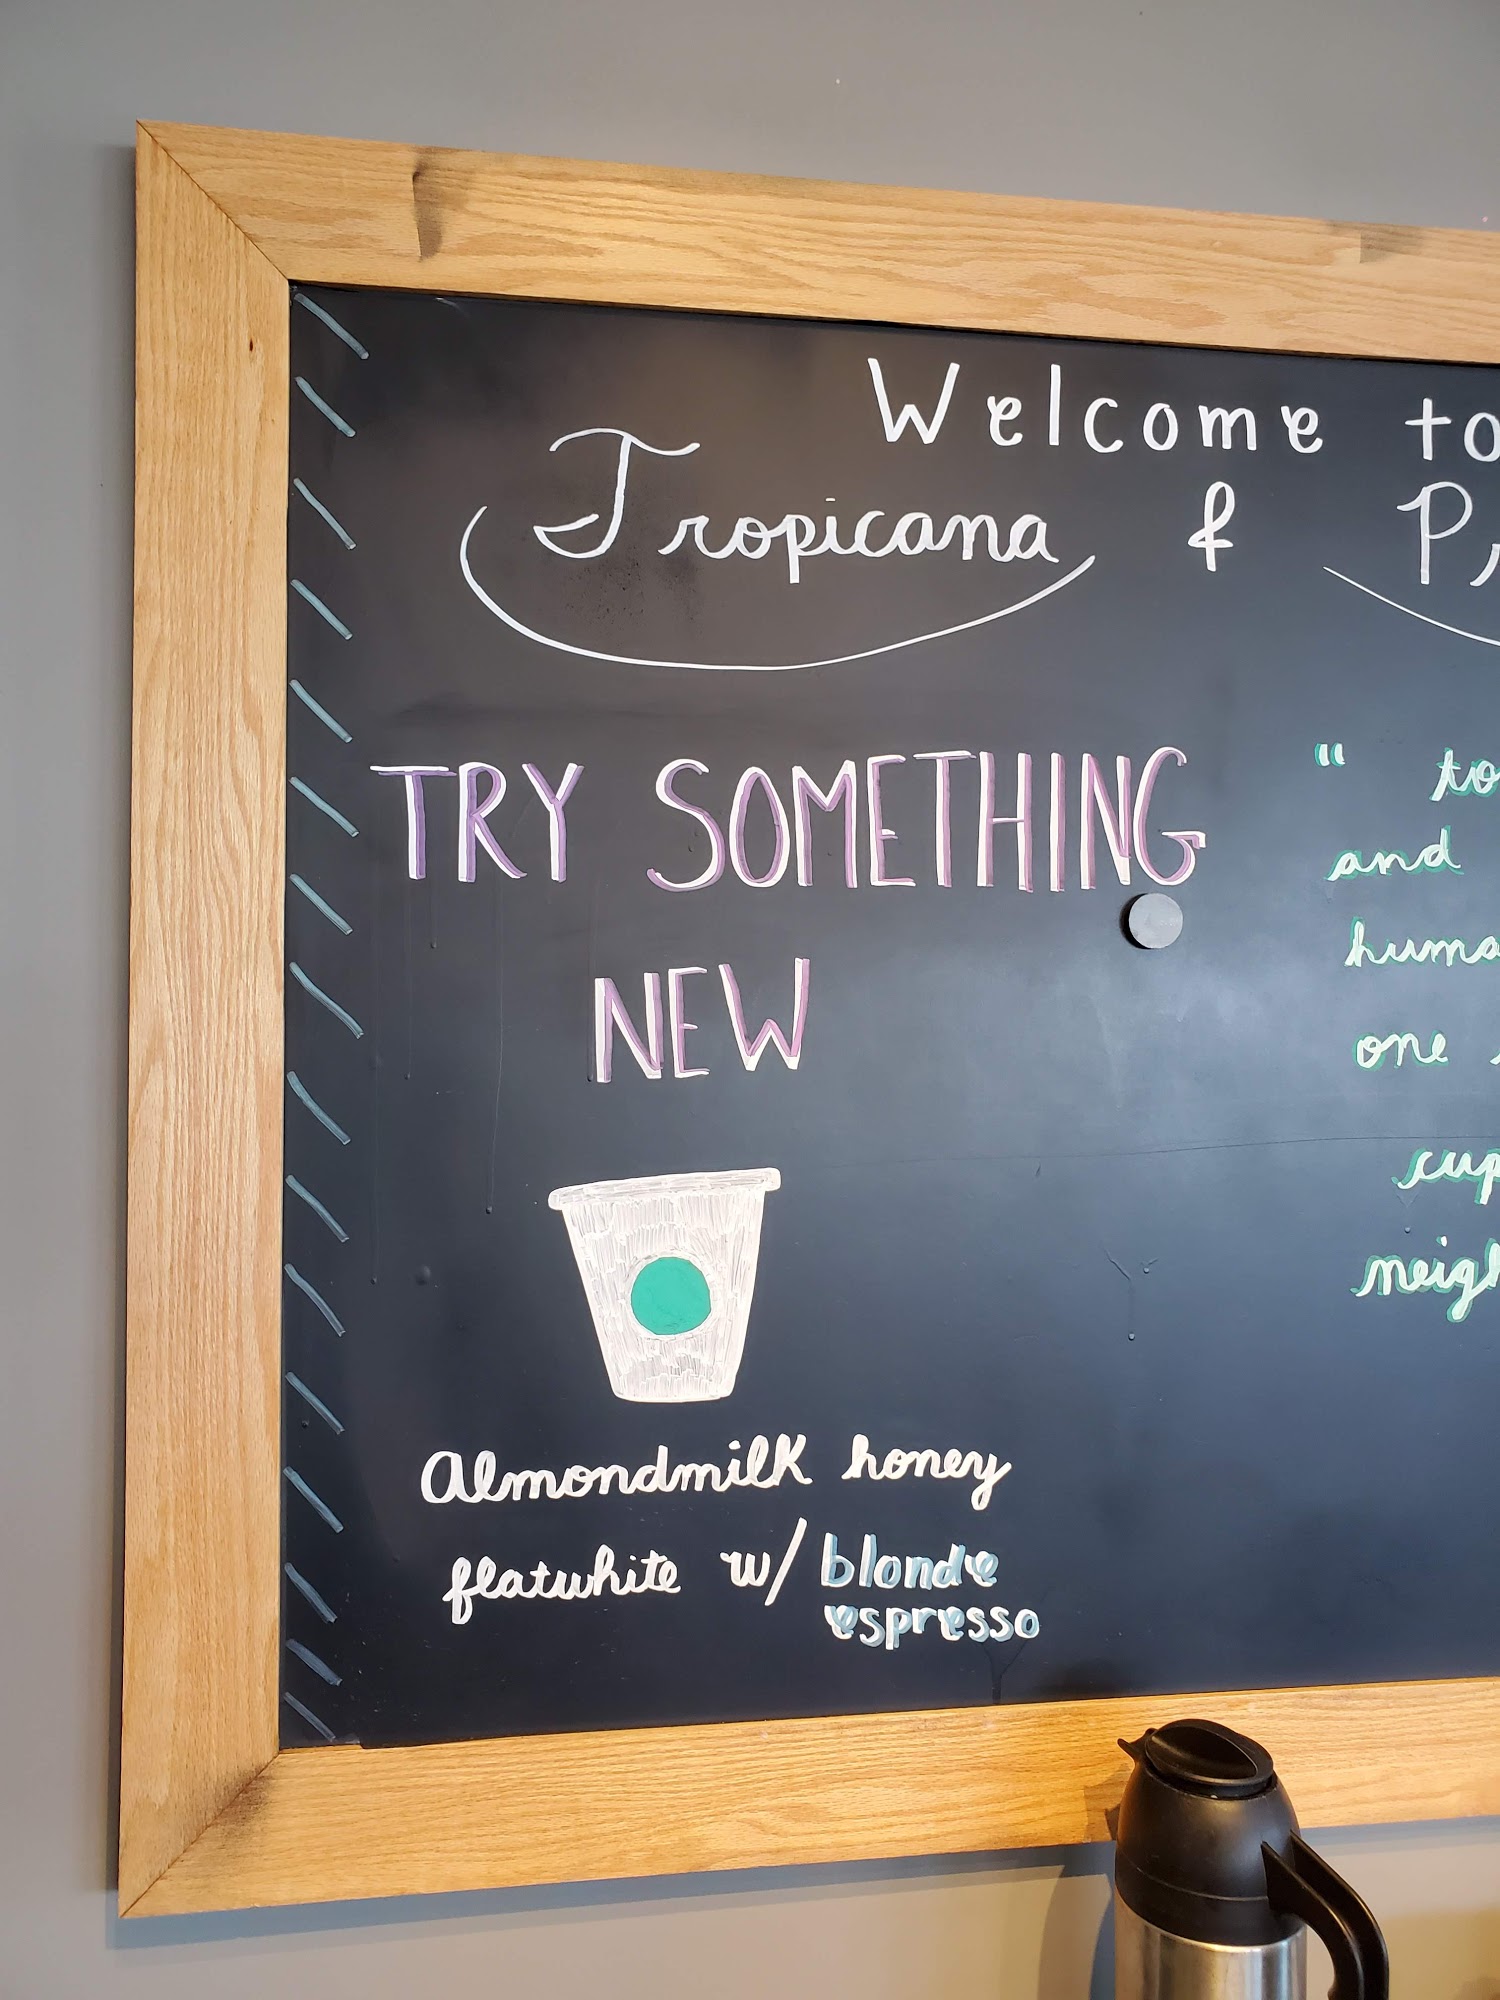 Welcome to
Tropicana & Pr
TRY SOMETHING
NEW
Almondmilk honey
flatwhite w/ blonde
espresso
" to
and
huma
one
cup
neigh